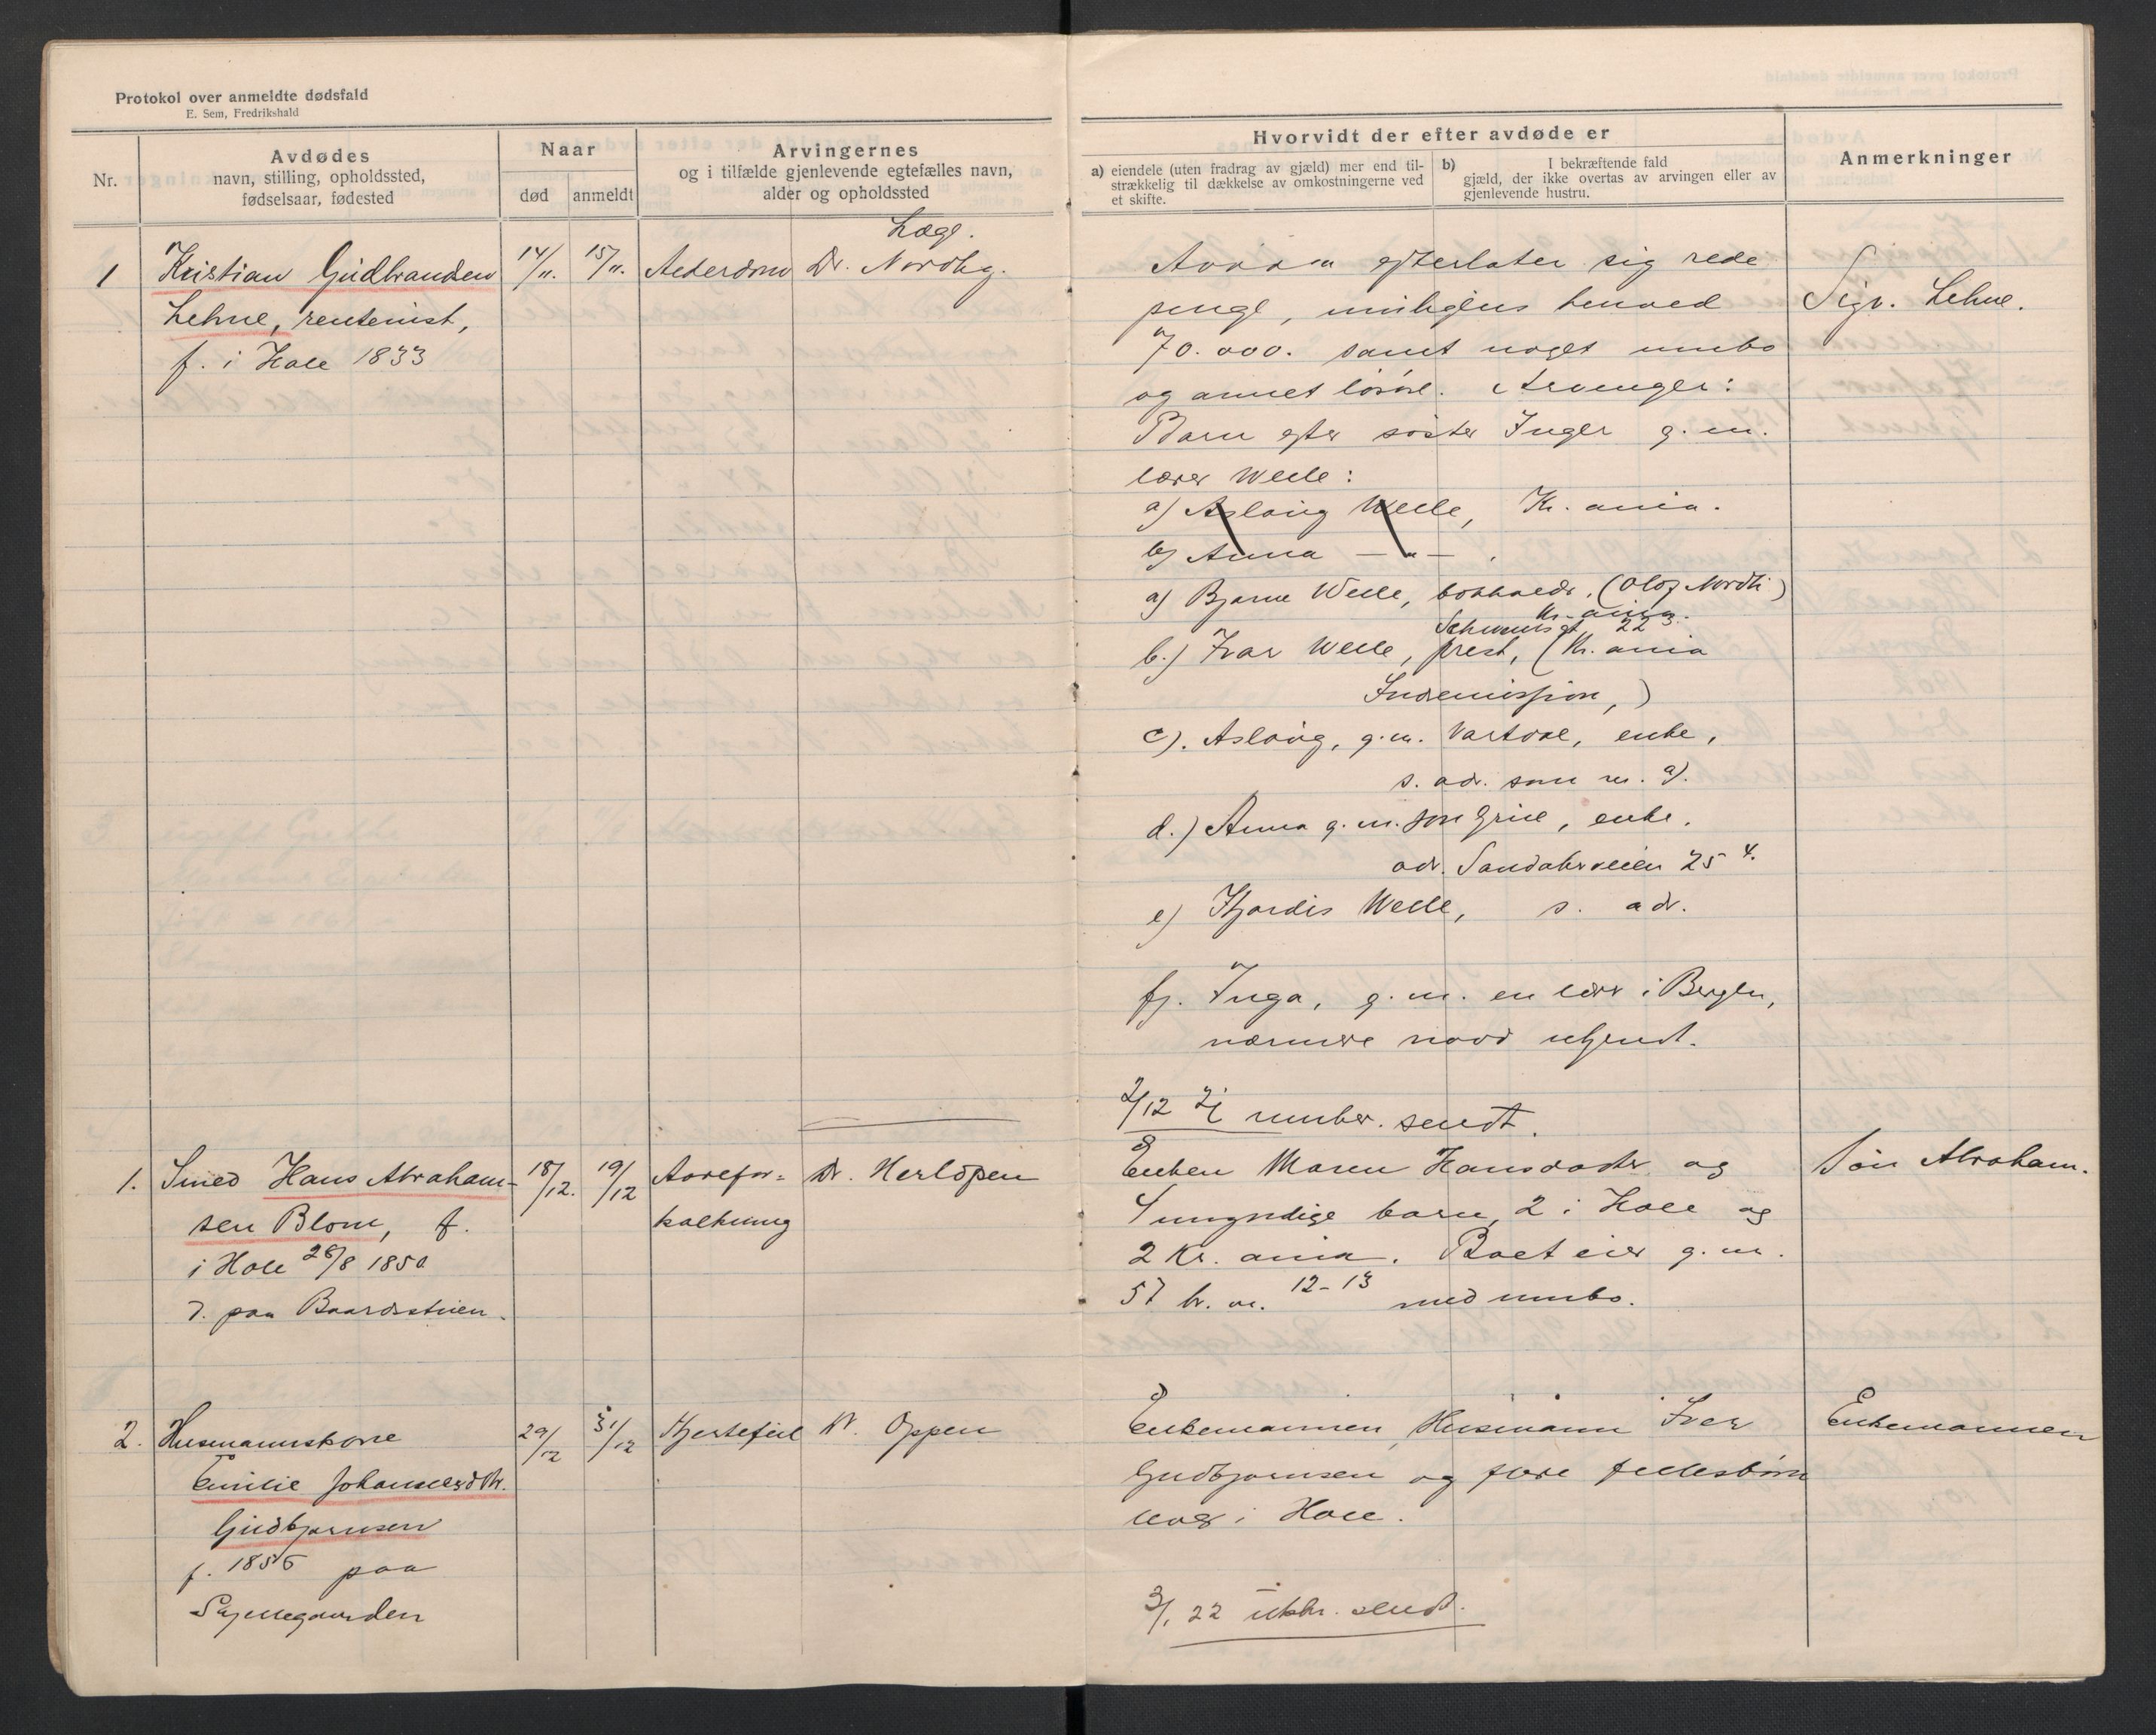 Protokol over anmeldte dødsfald
E. Sem, Fredrikshald
Nr.
Avdødes
navn, stilling, opholdssted,
fødselsaar, fødested
Naar
død
anmeldt
Arvingernes
og i tilfælde gjenlevende egtefælles navn,
alder og opholdssted
Hvorvidt der efter avdøde er
a) eiendele (uten fradrag av gjæld) mer end til-
strækkelig til dækkelse av omkostningerne ved
et skifte.
b) I bekræftende fald
gjæld, der ikke overtas av arvingen eller av
gjenlevende hustru.
Anmerkninger
Læge.
1 Kristian Gudbrandsen 14/11. 15/11. Alderdom Dr. Nordby.
Lehne, rentenist,
f. i Hole 1833
efterlater sig rede
penge, muligens henved
70.000. samt noget innbo
og annet løsøre. Arvinger:
Barn efter søster Inger g. m.
lærer Welle:
a) Aslaug Welle, Kr. ania.
b) Anna — " — .
a) Bjarne Welle, bokholder. (Olaf
Kr. ania.
22 3.
b.) Ivar Welle, prest, (Kr. ania
Indremission,)
c). Aslaug, g. m. Vartdal, enke,
s. adr. som a).
d.) Anna g. m. enke.
adr. 25 4.
e) Hjørdis Welle, s. adr.
f). Inga, g. m. en lærer i Bergen,
nærmere navn ukjendt.
2/12 21 sendt.
Sigv. Lehne.
1. Smed Hans Abraham- 18/12. 19/12 Aarefor= Dr.
sen Blom, f. kalkning
i Hole 28/8 1850
d. paa Baardsstuen.
Enken Maren Hansdatter og
4 umyndige barn, 2 i Hole og
2 Kr. ania. Boet eier g. m.
57 br. m. 12-13 med innbo.
Søn Abraham.
2. Husmannskone 29/12 31/12 Hjertefeil Dr. Oppen
Emilie Johannesdtr.
Gudbjørnsen
f. 1856 paa
Enkemannen, Husmann Iver
Gudbjørnsen og flere fellesbørn
i Hole.
3/1 22 sendt.
Enkemannen